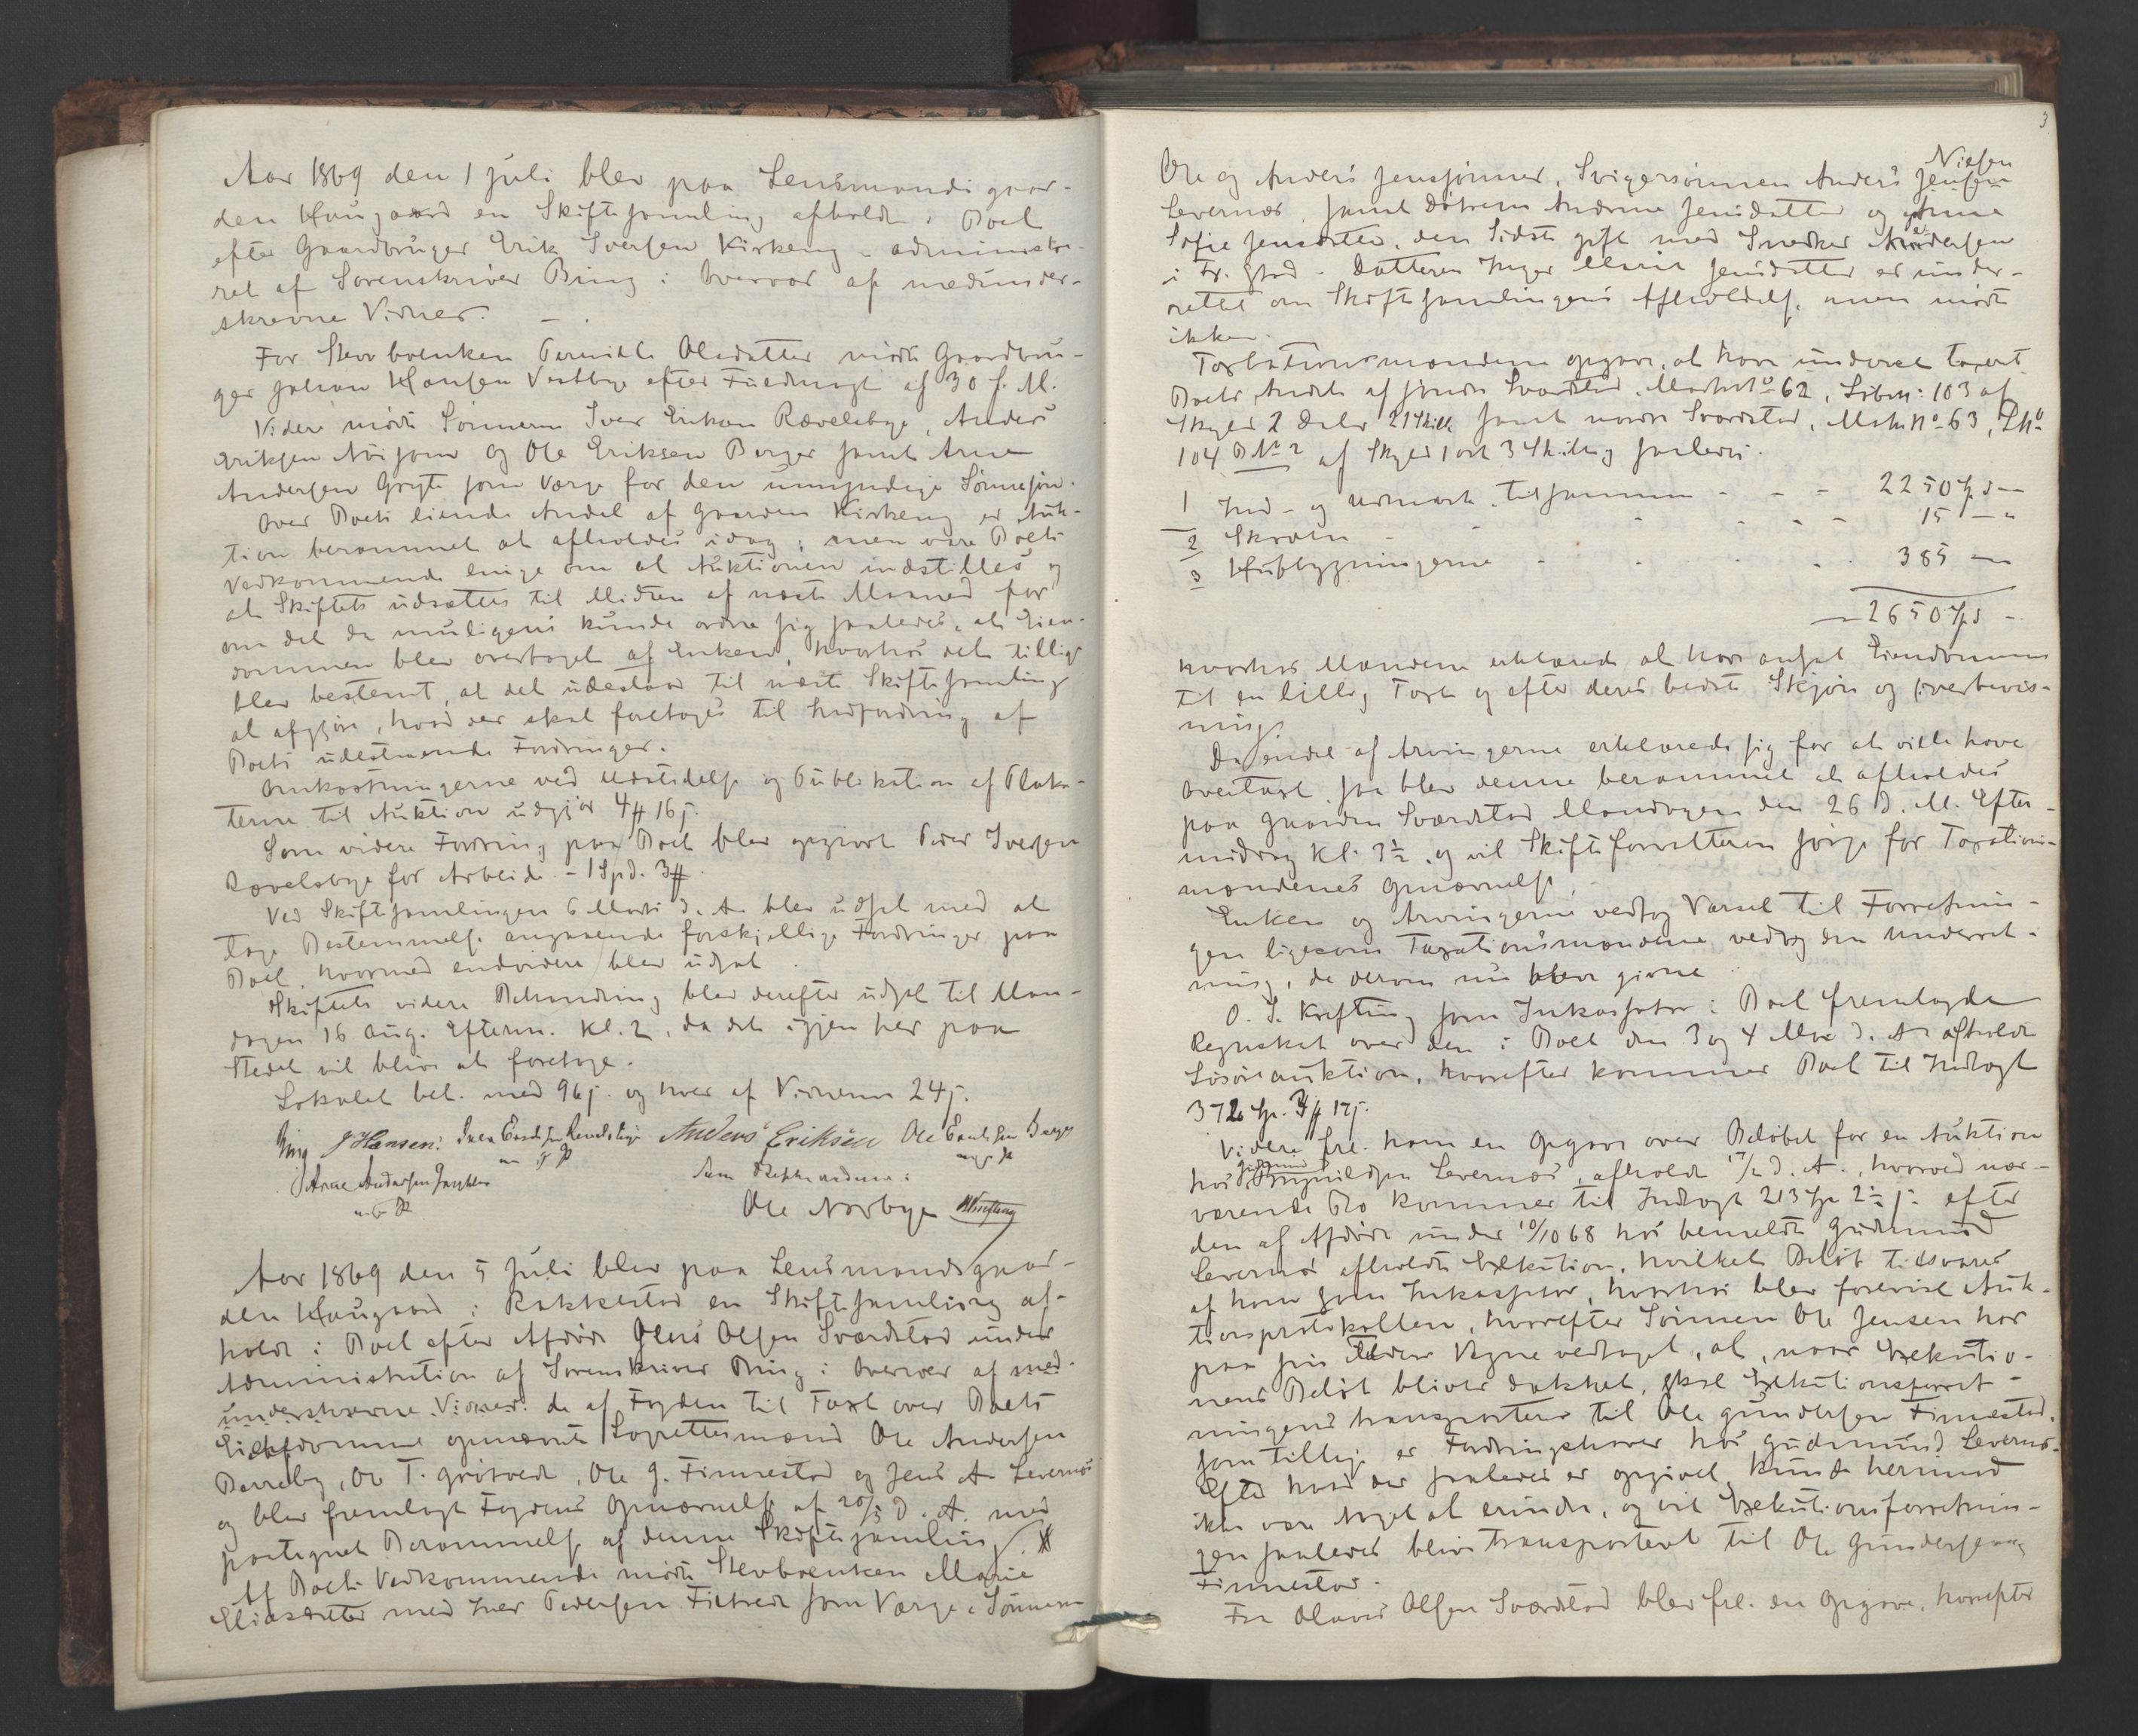 Aar 1869 den 1 Juli blev paa Lensmandsgaar-
den Haugaard en Skiftesamling afholdt i Boet
efter Gaardbruger Erik Iversen Kirkeng - administre-
ret af Sorenskriver Bing i Overvær af medunder-
skrevne Vidner. —
For Stervboenken Pernille Olsdatter mødte Gaardbru-
ger Johan Hansen Vestbye efter Fuldmagt af 30 f. M.
Videre mødte Sønnerne Iver Eriksen Rævelsbye, Anders
Eriksen og Ole Eriksen Berger samt Arne
Andersen som Værge for den umyndige Sønnesøn.
Over Boets eiende Andel af Gaarden Kirkeng er Auk-
tion berammet at afholdes idag; men vare Boets
Vedkommende enige om at Auktionen indstilles og
at Skiftets udsættes til Midten af næste Maaned for
om det da muligens kunde ordne sig saaledes, at Eien-
dommen blev overtaget af Enken, hvorhos det tillige
blev bestemt, at det udestaar til næste Skiftesamling
at afgjøre, hvad der skal foretages til Indfordring af
Boets udestaaende Fordringer.
Omkostningerne ved Udstedelse og Publikation af Plaka-
terne til Auktion udgjør 4 # 16 s.
Som videre Fordring paa Boet blev opgivet Peder Iversen
Rævelsbye for Arbeide - 1 Spd. 3 #.
Ved Skiftesamlingen 6 Marts d. A. blev udsat med at
tage Bestemmelse angaaende forskjellige Fordringer paa
Boet, hvormed endvidere blev udsat.
Skiftets videre Behandling blev derefter udsat til Man-
dagen 16 Aug. Efterm. Kl. 2, da det igjen her paa
Stedet vil blive at foretage.
Lokalet bet. med 96 s. og hver af Vidnerne 24 s.
Bing J Hansen. Iver Anders Eriksen Ole
Arne Andersen Som
Ole Norbye
Aar 1869 den 5 Juli blev paa Lensmandsgaar-
den Haugaard i Rakkestad en Skiftesamling af-
holdt i Boet efter Afdøde Jens Olsen Sværdstad under
Administration af Sorenskriver Bing i Overvær af med-
underskrevne Vidner: de af Fogden til Taxt over Boets
Eiendomme opnævnte Lagrettesmænd Ole Andersen
Berreby, Ole T. Grøtvedt, Ole G. Finnestad og Jens A. Levernæs
og blev fremlagt Fogdens Opnævnelse af 20/5 d. A. med
paategnet Berammelse af denne Skiftesamling.
Af Boets Vedkommende mødte Stervboenken Marie
Eliasdatter med Iver Pedersen som Værge, Sønnerne
3
Ole og Anders Jenssønner, Svigersønnen Anders Jensen Nielsen
Levernæs, samt Døtrene Andrine Jensdatter og Anne
Sofie Jensdatter, den Sidste gift med Snedker Andersen
i Fr.stad - Datteren Inger Marie Jensdatter er under-
rettet om Skiftesamlingens Afholdelse, men mødte
ikke.
Taxtationsmændene opgave, at have underet taxert
Boets Andel af søndre Sværdstad, Matr.No 62, Løbn: 103 af
Skyld 2 Daler 21 Skill samt nordre Sværdstad, Matr No 63, LNo
104 B No 2 af Skyld 1 ort 3 Skilling saaledes.
1 Ind- og Udmark tilsammen - - - 2250 Spd —
2 Skoven - - - - 15 — "
3 Husbygningerne - - - - 385 —
— 2650 Spd —
hvorhos Mændene erklærede at have ansat Eiendommen
til en billig Taxt og efter deres bedste Skjøn og Overbevis-
ning.
Da endel af Arvingerne erklærede sig for at ville have
Overtaxt, saa blev denne berammet at afholdes
paa Gaarden Sværdstad Mandagen den 26 d. M. Efter-
middag Kl. 3½, og vil Skifteforvalteren sørge for Taxations-
mændenes Opnævnelse.
Enken og Arvingerne vedtog Varsel til Forretnin-
gen ligesom Taxationsmændene vedtog den Underret-
ning, de derom nu bleve givne.
O. S. Krefting som Inkassator i Boet fremlagde
Regnskab over den i Boet den 3 og 4 Mai d. A. afholdte
Løsøreauktion, hvorefter kommer Boet til Indtægt
372 Sp. 3 # 17 s.
Videre frl. han en Opgave over Beløbet for en Auktion
hos Gudmund Levernæs, afholdt 17/2 d. A., hvorved nær-
værende Bo kommer til Indtægt 213 Sp 2 - s. efter
den af Afdøde under 10/10 68 hos bemeldte Gudmund
Levernæs afholdte Exekution, hvilket Beløb tilsvares
af ham som Inkassator, hvorhos blev forevist Auk-
tionsprotokollen, hvorefter Sønnen Ole Jensen har
paa sin Faders Vegne vedtaget, at, naar Exekutio-
nens Beløb bliver dækket, skal Exekutionsforret-
ningens transporteres til Ole Gundersen Finnestad,
som tillige er Fordringshaver hos Gudmund Levernæs.
Efter hvad der saaledes er opgivet, kunde hermed
ikke være noget at erindre, og vil Exekutionsforretnin-
gen saaledes blive transportert til Ole Gundersen
Finnestad.
Fra Olavus Olsen Sværdstad blev frl. en Opgave, hvorefter